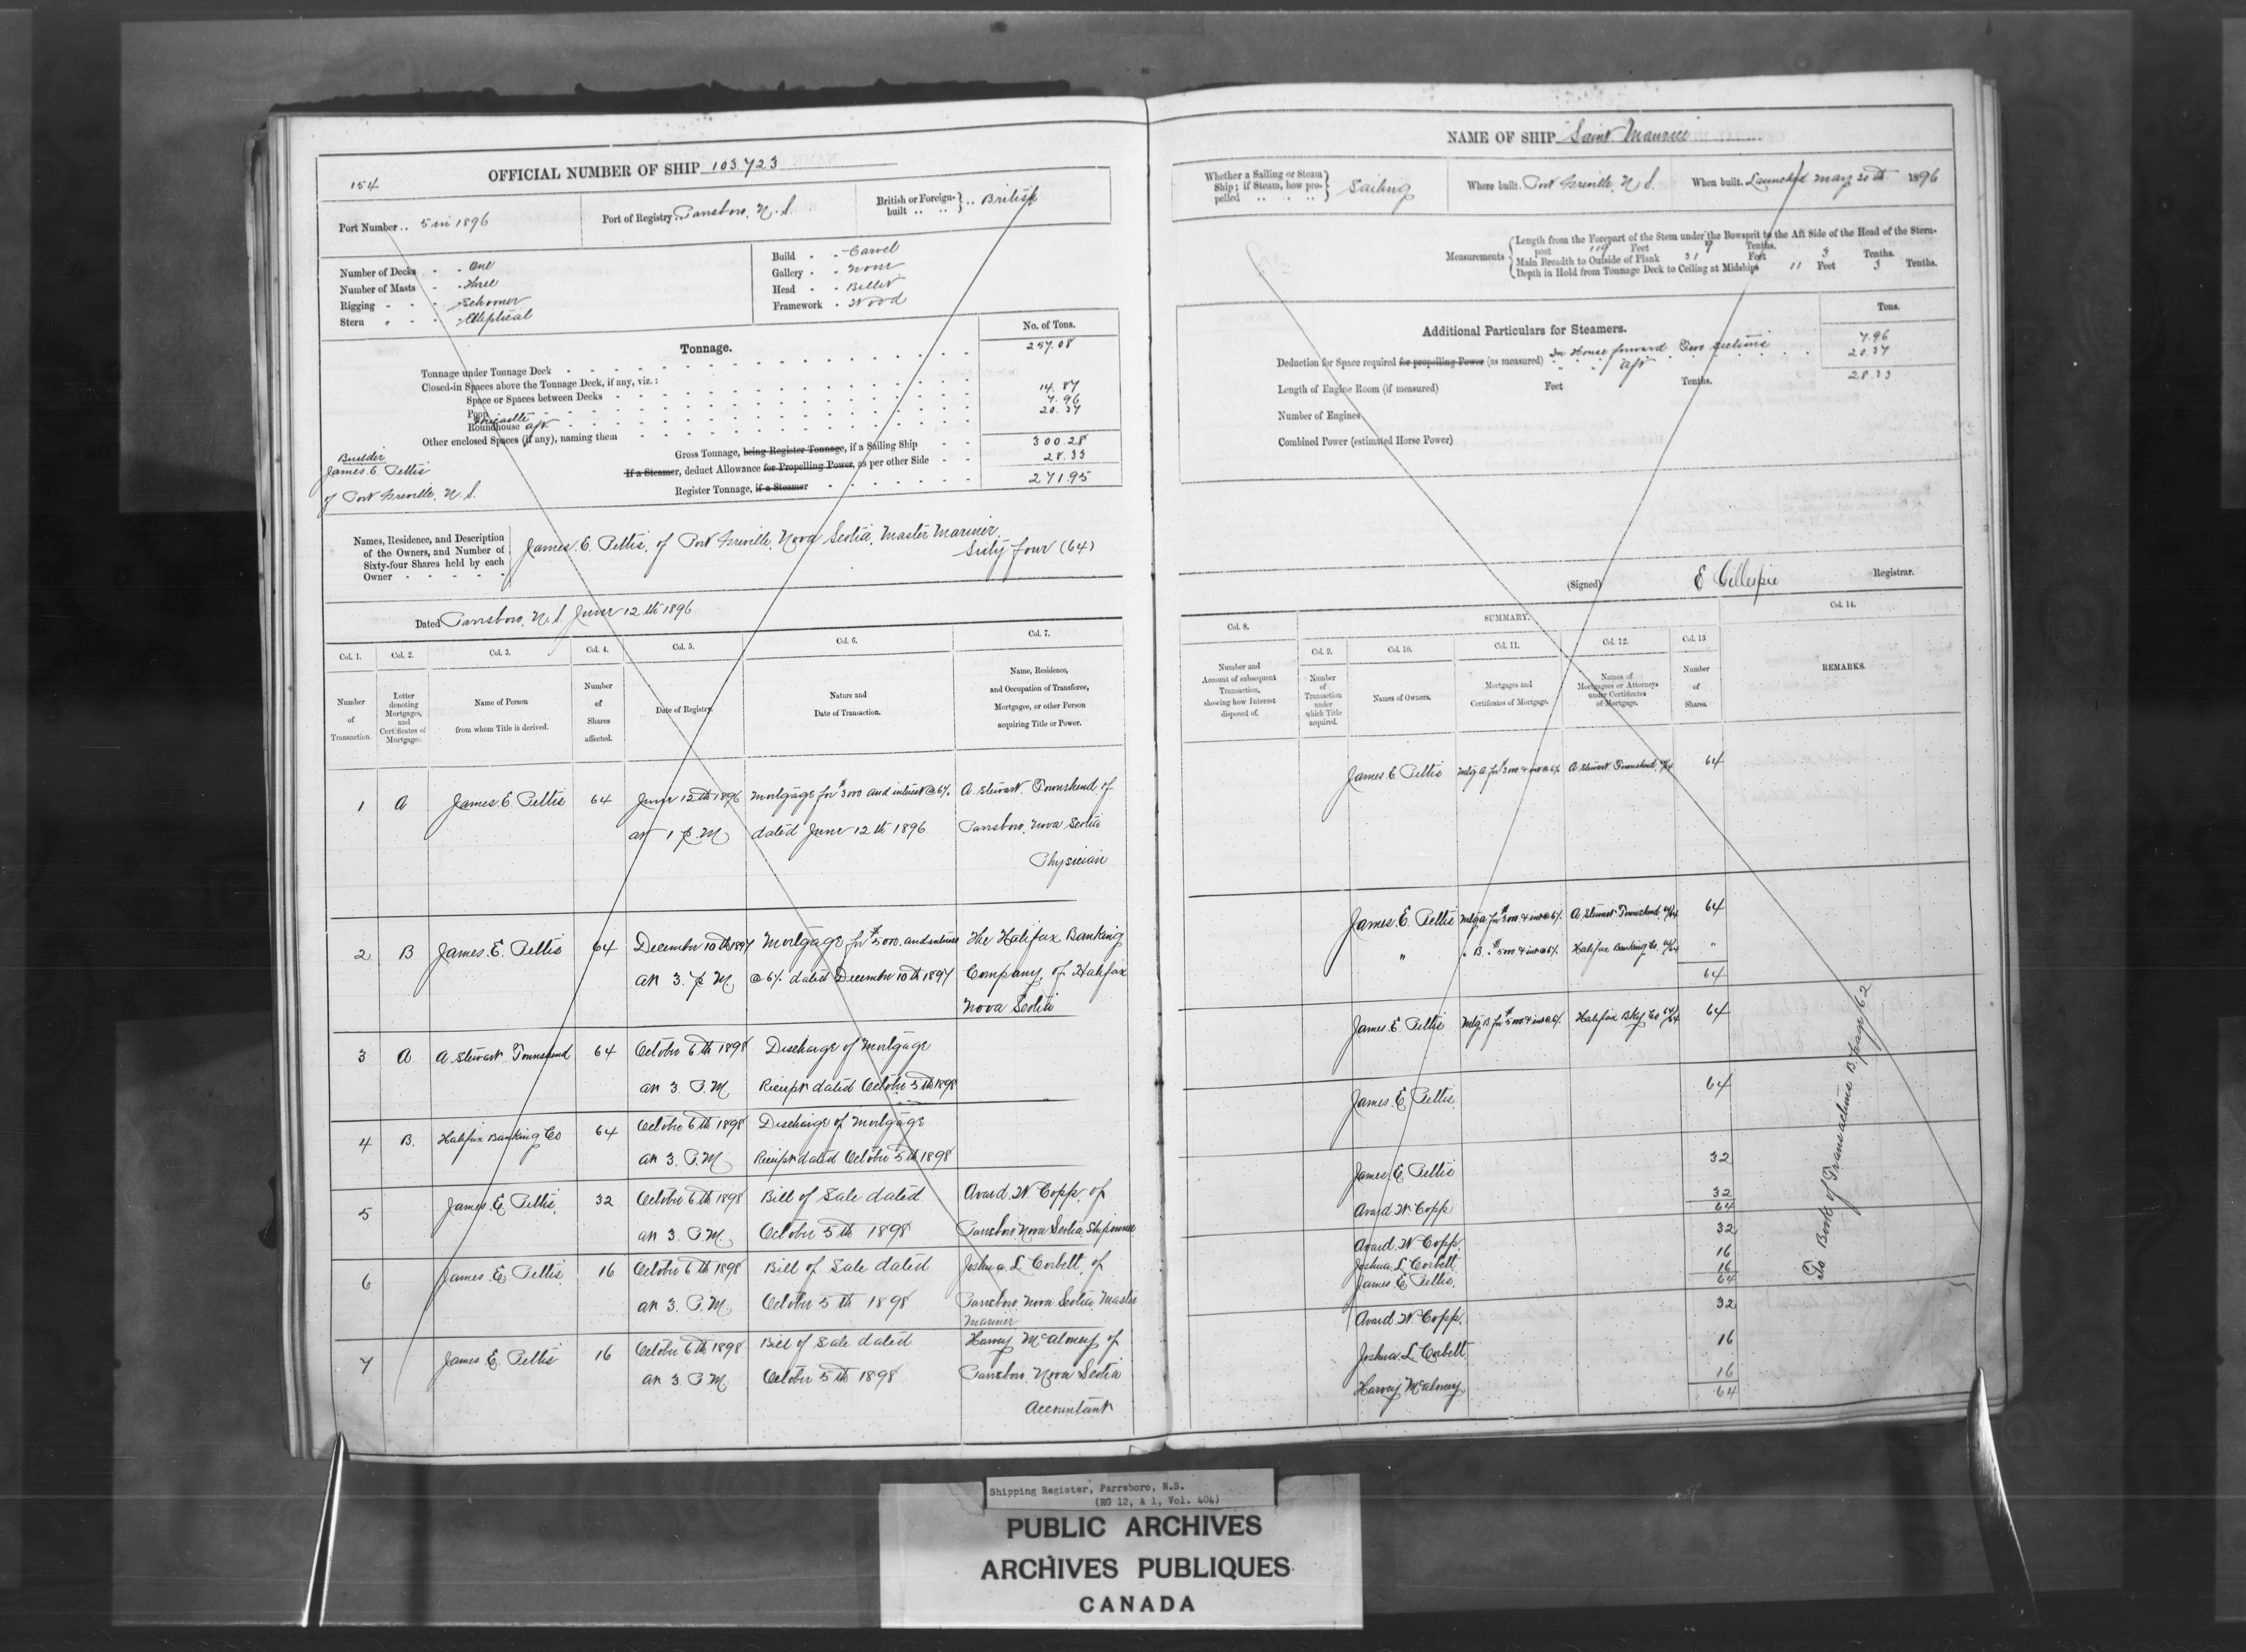 154
OFFICIAL NUMBER OF SHIP 103.723
Port Number .. 5 in 1896
Port of Registry Parrsboro, N. S.
British or Foreign-built .. .. } .. British
Number of Decks - - One
Number of Masts - - Three
Rigging - - - Schooner
Stern - - - Elliptical
Build - - Carvel
Gallery - - None
Head - - Billet
Framework - Wood
Tonnage.
No. of Tons.
Tonnage under Tonnage Deck 257.08
Closed-in Spaces above the Tonnage Deck, if any, viz.:
Space or Spaces between Decks
Poop 14.87
Forecastle 7.96
Roundhouse aft 20.37
Other enclosed Spaces (if any), naming them
Gross Tonnage, being Register Tonnage, if a Sailing Ship 300.28
If a Steamer, deduct Allowance for Propelling Power, as per other Side 28.33
Register Tonnage, if a Steamer 271.95
Builder
James E Pettis
of Port Greville, N. S.
Names, Residence, and Description
of the Owners, and Number of
Sixty-four Shares held by each
Owner
James. E. Pettis, of Port Greville, Nova Scotia, Master Mariner,
Sixty four (64)
Dated Parrsboro, N. S. June 12th 1896
Col. 1. Col. 2. Col. 3. Col. 4. Col. 5. Col. 6. Col. 7.
Number of Transaction.
Letter denoting Mortgages, and Certificates of Mortgages.
Name of Person from whom Title is derived.
Number of Shares affected.
Date of Registry.
Nature and Date of Transaction.
Name, Residence, and Occupation of Transferee, Mortgagee, or other Person acquiring Title or Power.
1 A James E Pettis 64 June 12th 1896 Mortgage for $3000 and interest @ 6%. A. Stewart. Townshend of
at 1 p. M dated June 12th 1896 Parrsboro, Nova Scotia
Physician
2 B James. E. Pettis 64 December 10th 1897 Mortgage for $5000. and interest The Halifax Banking
at 3. p M. @ 6%. dated December 10th 1897 Company, of Halifax
Nova Scotia
3 A A. Stewart. Townshend 64 October 6th 1898 Discharge of Mortgage
at 3. P. M. Receipt dated October 5th 1898
4 B. Halifax Banking Co 64 October 6th 1898 Discharge of Mortgage
at 3. P. M Receipt dated October 5th 1898
5 James. E. Pettis, 32 October 6th 1898 Bill of Sale dated Avard. W. Copp, of
at 3. P. M. October 5th 1898 Parrsboro Nova Scotia, Shipowner
6 James. E. Pettis 16 October 6th 1898 Bill of Sale dated Joshua. L. Corbett, of
at 3. P. M. October 5th 1898 Parrsboro Nova Scotia, Master
Mariner
7 James. E. Pettis 16 October 6th 1898 Bill of Sale dated Harvey McAloney of
at 3. P. M. October 5th 1898 Parrsboro, Nova Scotia
Accountant
NAME OF SHIP "Saint Maurice"
Whether a Sailing or Steam
Ship; if Steam, how pro-
pelled .. .. .. } Sailing
Where built. Port Greville, N. S.
When built. Launched May 30th 1896
Measurements
Length from the Forepart of the Stem under the Bowsprit to the Aft Side of the Head of the Stern-
post 119 Feet 9 Tenths.
Main Breadth to Outside of Plank 31 Feet 3 Tenths.
Depth in Hold from Tonnage Deck to Ceiling at Midships 11 Feet 3 Tenths.
Additional Particulars for Steamers.
Tons.
Deduction for Space required for propelling Power (as measured) In House forward Two sections 7.96
" " aft 20.37
28.33
Length of Engine Room (if measured) Feet Tenths.
Number of Engines
Combined Power (estimated Horse Power)
(Signed) E Gillespie Registrar.
SUMMARY.
Col. 8. Col. 9. Col. 10. Col. 11. Col. 12. Col. 13 Col. 14.
Number and Account of subsequent Transaction, showing how Interest disposed of.
Number of Transaction under which Title acquired.
Names of Owners.
Mortgages and Certificates of Mortgage.
Names of Mortgagees or Attorneys under Certificates of Mortgage.
Number of Shares.
REMARKS.
James E Pettis Mtg A for $3000 & int @ 6%. A. Stewart Townshend, 64/64 64
James. E. Pettis Mtg. A for $3000 & int @ 6%. A Stewart Townshend 64/64 64
" " B. " $5000 & int @ 6%. Halifax Banking Co. 64/64 "
64
James. E. Pettis Mtg. B for $5000 & int @ 6%. Halifax Bkg Co 64/64 64
James. E. Pettis. 64
James. E. Pettis 32
Avard W. Copp 32
64
Avard. W. Copp. 32
Joshua. L. Corbett 16
James E Pettis. 16
64
Avard W. Copp. 32
Joshua. L. Corbett 16
Harvey McAloney 16
64
To Book of Transactions B. page 62
Shipping Register, Parrsboro, N.S.
(RG 12, A 1, Vol. 404)
PUBLIC ARCHIVES
ARCHIVES PUBLIQUES
CANADA